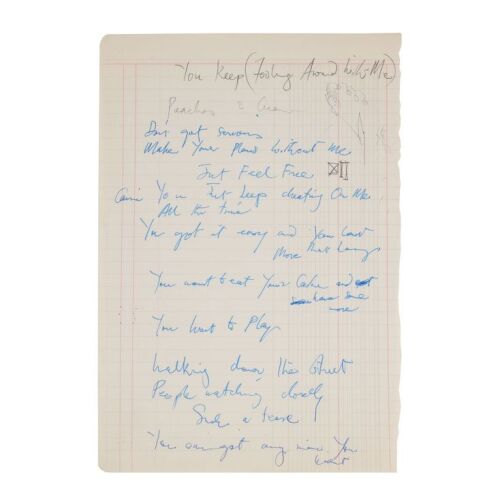 You Keep (Fooling Around With Me)
Peaches & Cream
Just got serious
Make Your Plans Without Me
Just Feel Free
You Just keep cheating On Me
All the time
You got it easy and You want
More than
You want to eat Your Cake and
have some
more
You Want to Play
Walking down the Street
People watching closely
Such a tease
You can get any man You
want